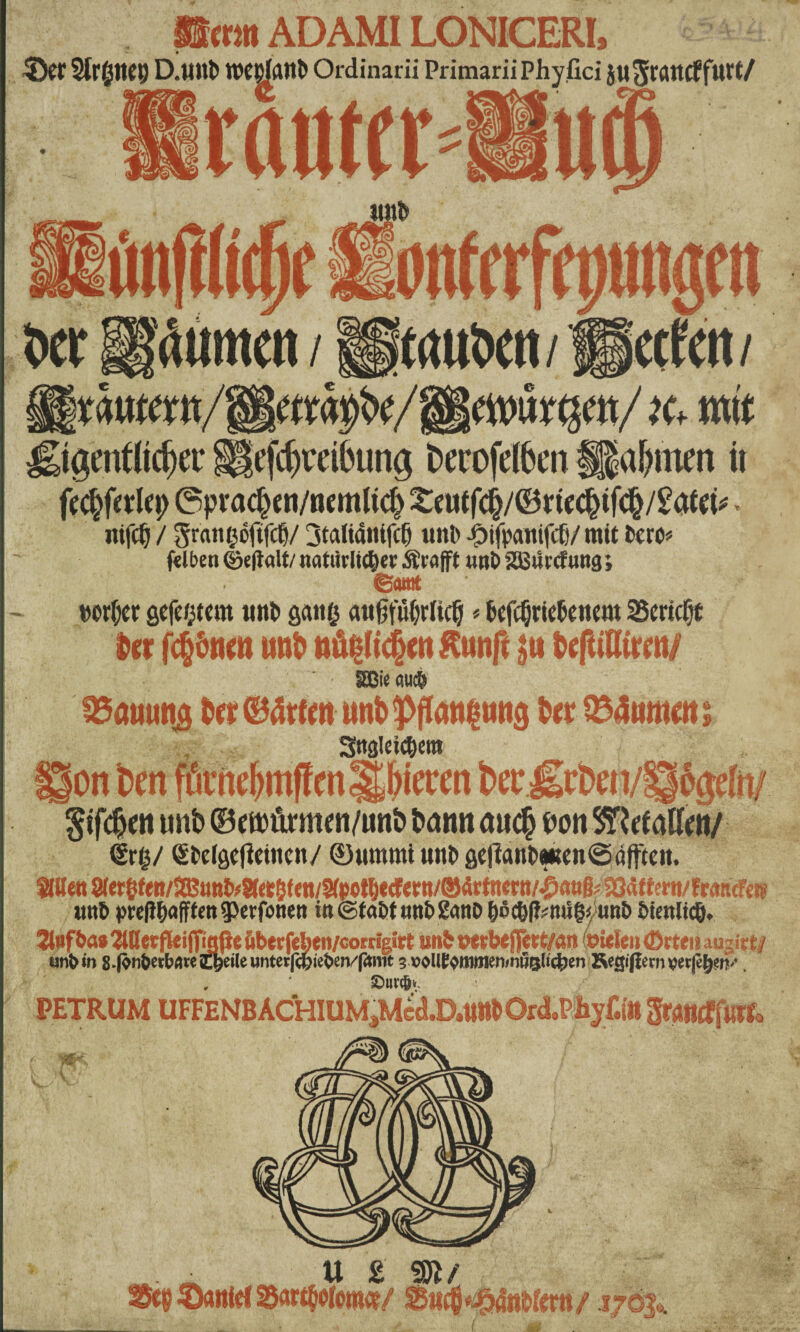 Herrn ADAMI LONICERI,
Der Artzney D. und weyland Ordinarii Primarii Physici zu Franckfurt/
Kräuter-Buch
und
Künstliche Conterfeyungen
der Bäumen / Stauden / Hecken /
Kräutern/Geträyde/Gewürtzen/ ꝛc. mit
Eigentlicher Beschreibung derofelben Nahmen in
sechserley Sprachen/nemlich Teutsch/Griechisch/Latei-
nisch / Frantzösisch/ Italiänisch und Hispanisch/ mit dero-
selben Gestalt/ natürlicher Krafft und Würckung;
Samt
vorher gesetztem und gantz außführlich-beschriebenem Bericht
der schönen und nützlichen Kunst zu destilliren/
Wie auch
Bauung der Gärten und Pflantzung der Bäumen;
Ingleichem
Von den fürnehmsten Thieren der Erden/Vögeln/
Fischen und Gewürmen/und dann auch von Metallen/
Ertz/ Edelgesteinen/ Gummi und gestandenen Säfften.
Allen Aertzten/Wund-Aertzten/Apotheckern/Gärtnern/Hauß-Vättern/Krancken
und presthafften Personen in Stadt und Land höchst-nütz- und dienlich.
Auf das Allerfleissigste übersehen/corrigirt und verbessert/an vielen Orten augirt/
und in 8. sonderbare Theile unterschieden/samt 3 vollkommen-nützlichen Registern versehen/
Durch
PETRUM UFFENBACHIUM, Med. D. und Ord. Phys. in Franckfurt.
ULM/
Bey Daniel Bartholomæ/ Buch-Händlern / 1703.